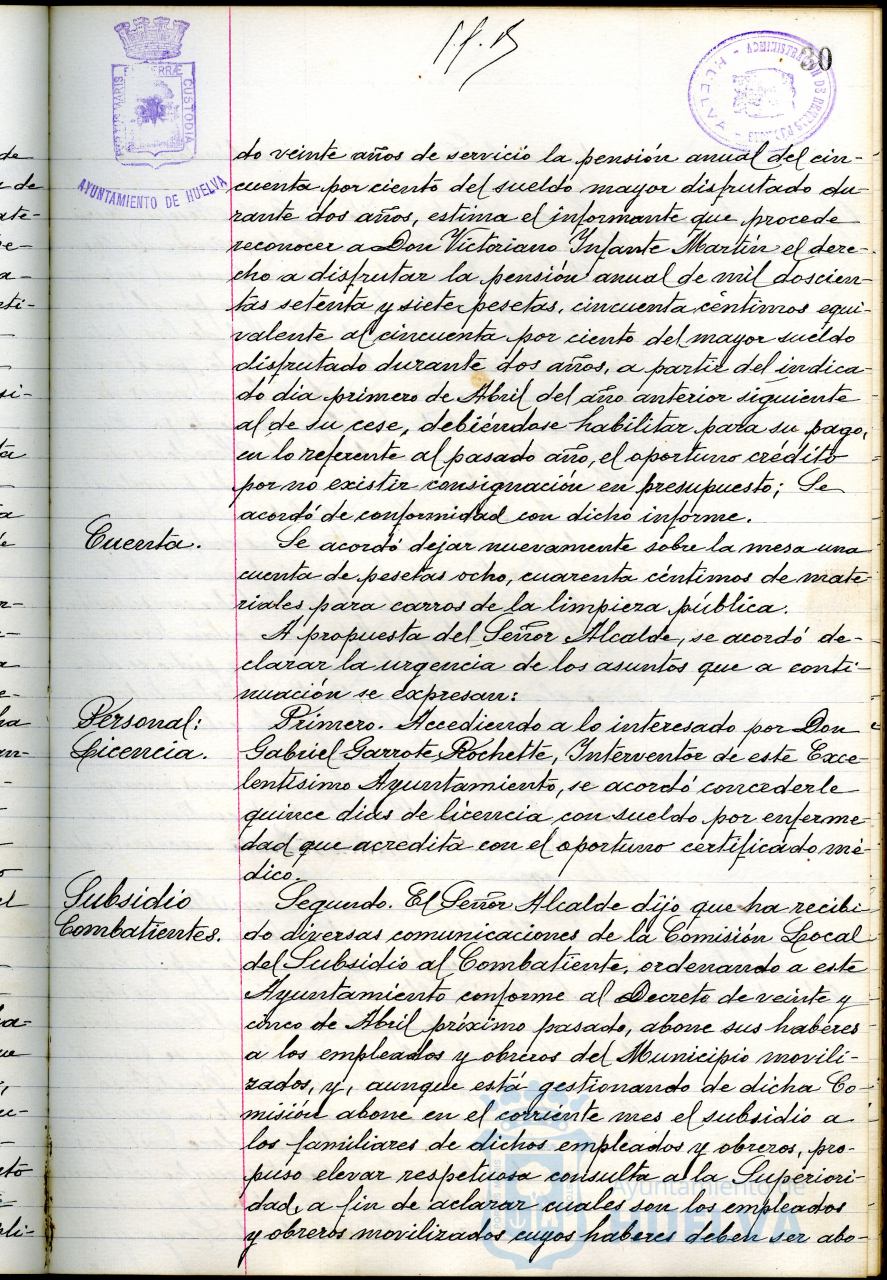 30
PORTUS MARIS ET TERRÆ CUSTODIA
AYUNTAMIENTO DE HUELVA
HUELVA
do veinte años de servicio la pensión anual del cin-
cuenta por ciento del sueldo mayor disfrutado du-
rante dos años, estima el informante que procede
reconocer a Don Victoriano Infante Martín el dere-
cho a disfrutar la pensión anual de mil doscien-
tas setenta y siete pesetas, cincuenta céntimos equi-
valente al cincuenta por ciento del mayor sueldo
disfrutado durante dos años, a partir del indica-
do día primero de Abril del año anterior siguiente
al de su cese, debiéndose habilitar para su pago,
en lo referente al pasado año, el oportuno crédito
por no existir consignación en presupuesto; Se
acordó de conformidad con dicho informe.
Cuenta.
Se acordó dejar nuevamente sobre la mesa una
cuenta de pesetas ocho, cuarenta céntimos de mate-
riales para carros de la limpieza pública.
A propuesta del Señor Alcalde, se acordó de-
clarar la urgencia de los asuntos que a conti-
nuación se expresan:
Personal:
Licencia.
Primero. Accediendo a lo interesado por Don
Gabriel Garrote Rochette, Interventor de este Exce-
lentísimo Ayuntamiento, se acordó concederle
quince dias de licencia, con sueldo por enferme-
dad que acredita con el oportuno certificado mé-
dico.
Subsidio
Combatientes.
Segundo. El Señor Alcalde dijo que ha recibi-
do diversas comunicaciones de la Comisión Local
del Subsidio al Combatiente, ordenando a este
Ayuntamiento conforme al Decreto de veinte y
cinco de Abril próximo pasado, abone sus haberes
a los empleados y obreros del Municipio movili-
zados, y, aunque está gestionando de dicha Co-
misión abone en el corriente mes el subsidio a
los familiares de dichos empleados y obreros, pro-
puso elevar respetuosa consulta a la Superiori-
dad, a fin de aclarar cuales son los empleados
y obreros movilizados cuyos haberes deben ser abo-
Ayuntamiento de
HUELVA